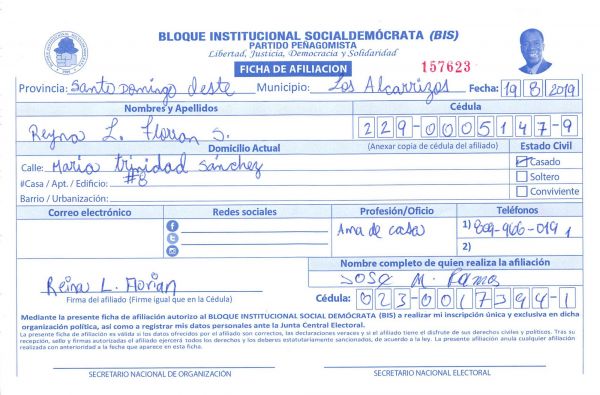 BLOQUE INSTITUCIONAL SOCIALDEMÓCRATA (BIS)
PARTIDO PEÑAGOMISTA
Libertad, Justicia, Democracia y Solidaridad
FICHA DE AFILIACION 157623
Provincia: Santo Domingo Oeste Municipio: Los Alcarrizos Fecha: 19 8 2019
Nombres y Apellidos Cédula
Reyna L. Florian S. 229-0005147-9
Domicilio Actual (Anexar copia de cédula del afiliado) Estado Civil
Calle: Maria trinidad Sánchez Casado
#Casa / Apt. / Edificio: #8 Soltero
Barrio / Urbanización: Conviviente
Correo electrónico Redes sociales Profesión/Oficio Teléfonos
Ama de casa 1) 809-966-0191
2)
Nombre completo de quien realiza la afiliación
Reina L. Florian Jose M. Ramos
Firma del afiliado (Firme igual que en la Cédula) Cédula: 023-0017394-1
Mediante la presente ficha de afiliación autorizo al BLOQUE INSTITUCIONAL SOCIAL DEMÓCRATA (BIS) a realizar mi inscripción única y exclusiva en dicha
organización política, así como a registrar mis datos personales ante la Junta Central Electoral.
La presente ficha de afiliación es válida si los datos ofrecidos por el afiliado son correctos, las declaraciones veraces y si el afiliado tiene el disfrute de sus derechos civiles y políticos. Tras su
recepción, sello y firmas autorizadas el afiliado ejercerá todos los derechos y los deberes estatutariamente sancionados, de acuerdo a la ley. La presente afiliación anula cualquier afiliación
realizada con anterioridad a la fecha que aparece en esta ficha.
SECRETARIO NACIONAL DE ORGANIZACIÓN SECRETARIO NACIONAL ELECTORAL